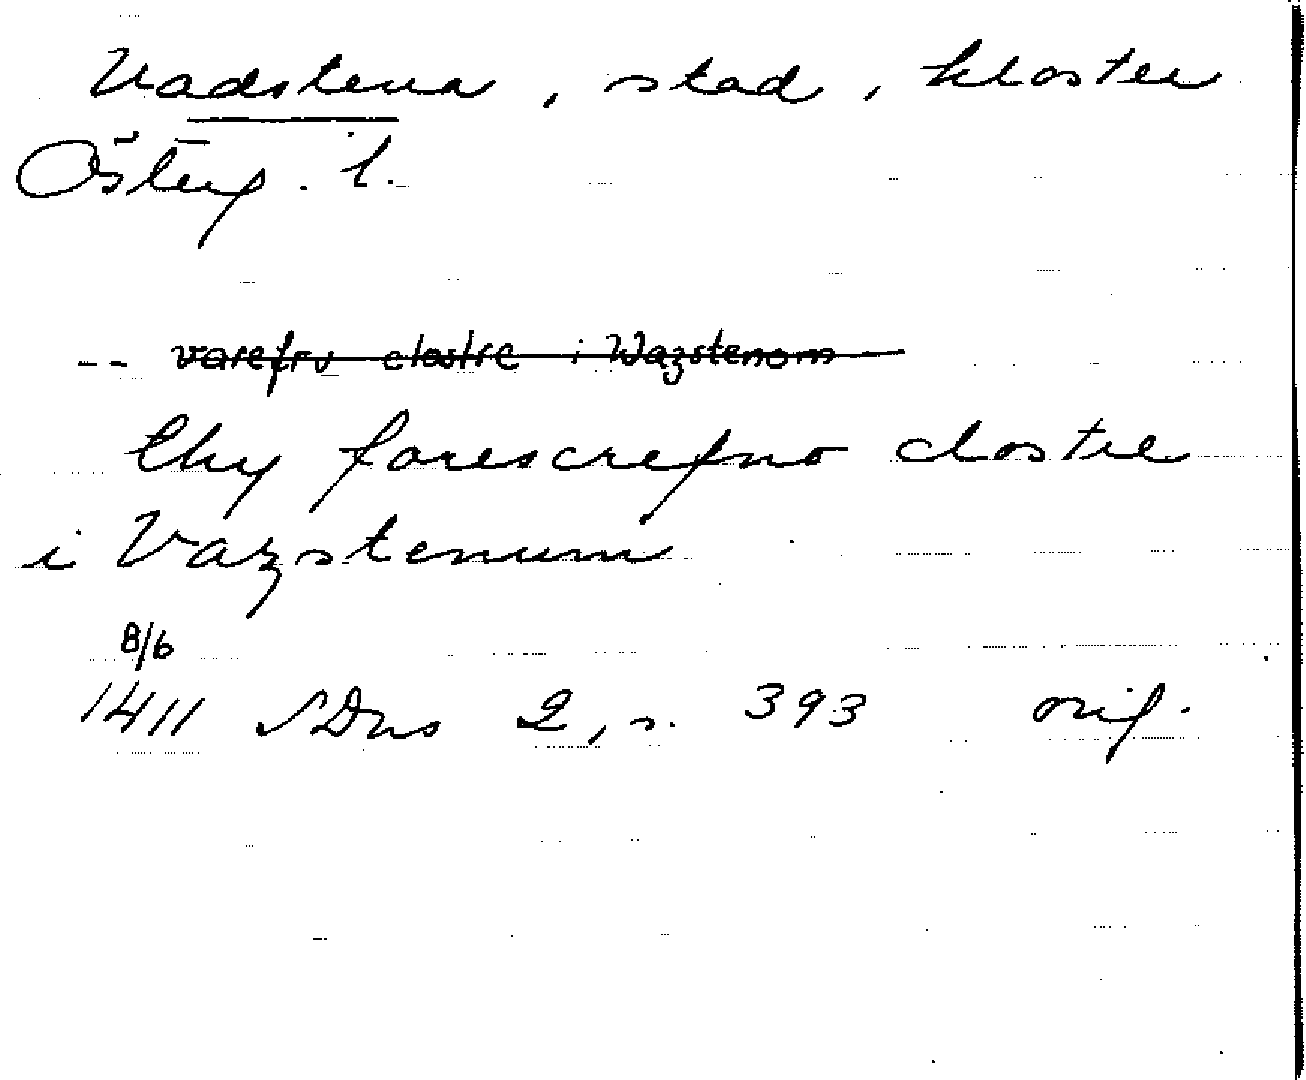 Vadstena, stad, kloster
Österg. l.
-- varefru clostre i Wazstenom
thy forescrefno clostre
i Vazstenum
8/6
1411 SDns 2, s. 393 orig.